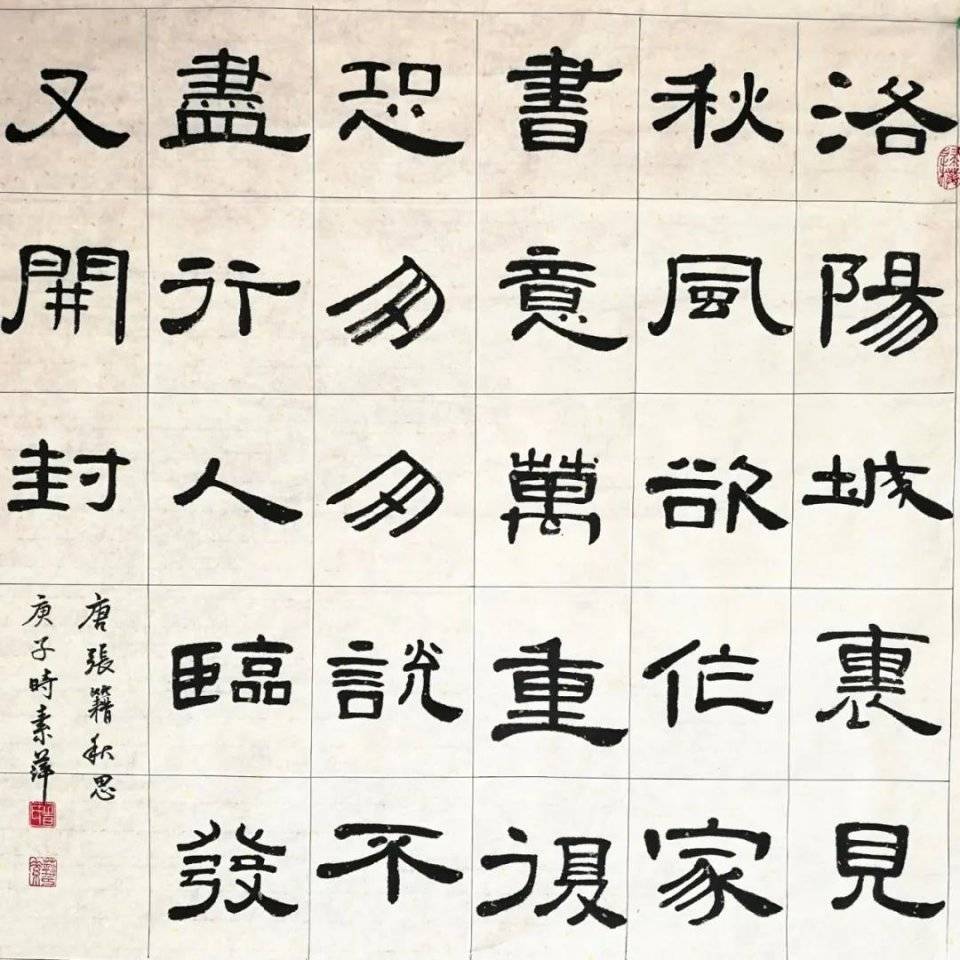 洛陽城裏見
秋風欲作家
書意萬重復
恐勿勿說不
盡行人臨發
又開封
唐張籍秋思
庚子時素萍